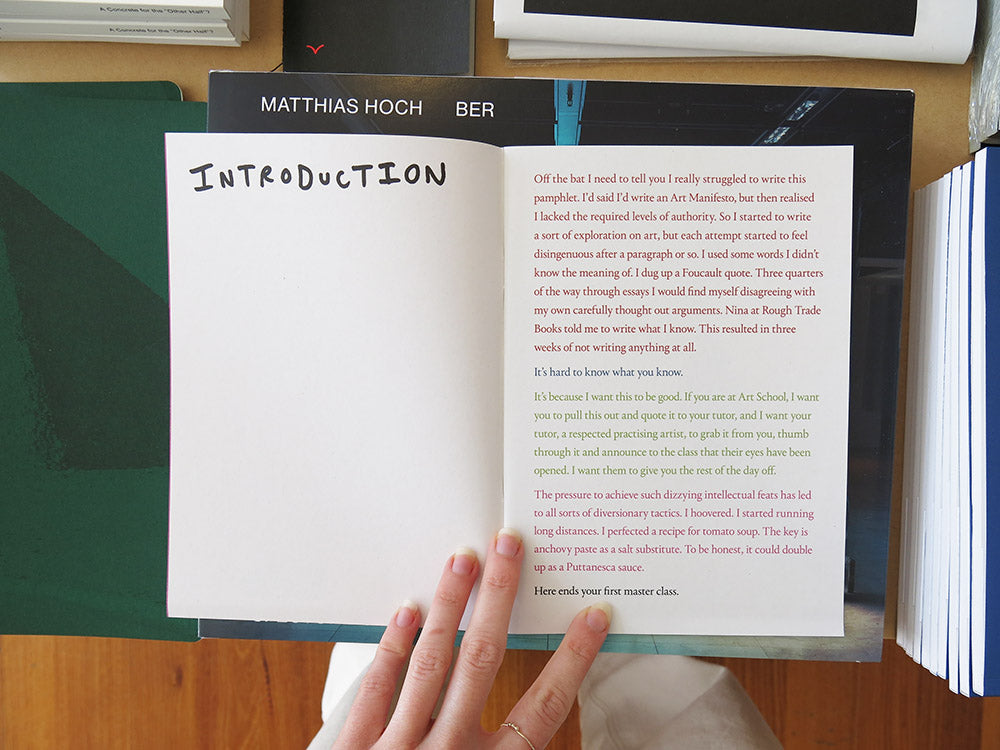 A Concrete for the "Other Half"?
A Concrete for the "Other Half"?
MATTHIAS HOCH BER
INTRODUCTION
Off the bat I need to tell you I really struggled to write this
pamphlet. I'd said I'd write an Art Manifesto, but then realised
I lacked the required levels of authority. So I started to write
a sort of exploration on art, but each attempt started to feel
disingenuous after a paragraph or so. I used some words I didn't
know the meaning of. I dug up a Foucault quote. Three quarters
of the way through essays I would find myself disagreeing with
my own carefully thought out arguments. Nina at Rough Trade
Books told me to write what I know. This resulted in three
weeks of not writing anything at all.
It's hard to know what you know.
It's because I want this to be good. If you are at Art School, I want
you to pull this out and quote it to your tutor, and I want your
tutor, a respected practising artist, to grab it from you, thumb
through it and announce to the class that their eyes have been
opened. I want them to give you the rest of the day off.
The pressure to achieve such dizzying intellectual feats has led
to all sorts of diversionary tactics. I hoovered. I started running
long distances. I perfected a recipe for tomato soup. The key is
anchovy paste as a salt substitute. To be honest, it could double
up as a Puttanesca sauce.
Here ends your first master class.